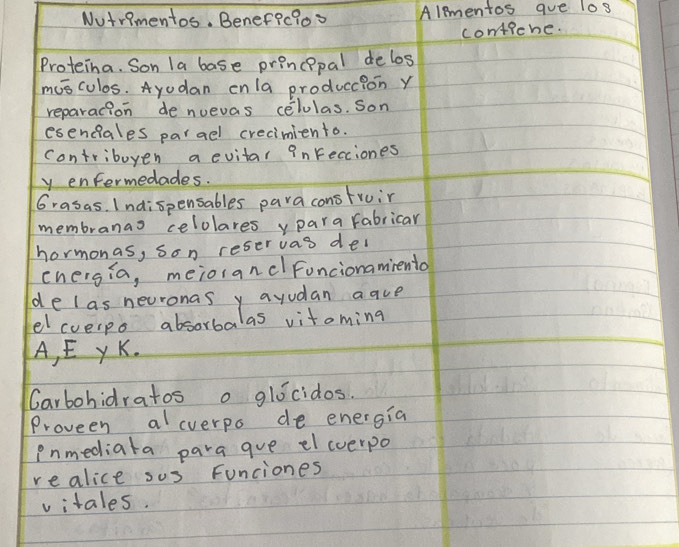 Nutrimentos. Beneficios
Alimentos que los
contiene.
Proteína. Son la base principal de los
músculos. Ayudan en la producción y
reparación de nuevas células. Son
esenciales par ael crecimiento.
contribuyen a evitar infecciones
y enfermedades.
Grasas. Indispensables para construir
membranas celulares y para fabricar
hormonas, son reservas de
energía, mejoran el funcionamiento
de las neuronas y ayudan aque
el cuerpo absorba las vitamina
A, E y K.
Carbohidratos o glúcidos.
Proveen al cuerpo de energía
inmediata para que el cuerpo
realice sus funciones
vitales.